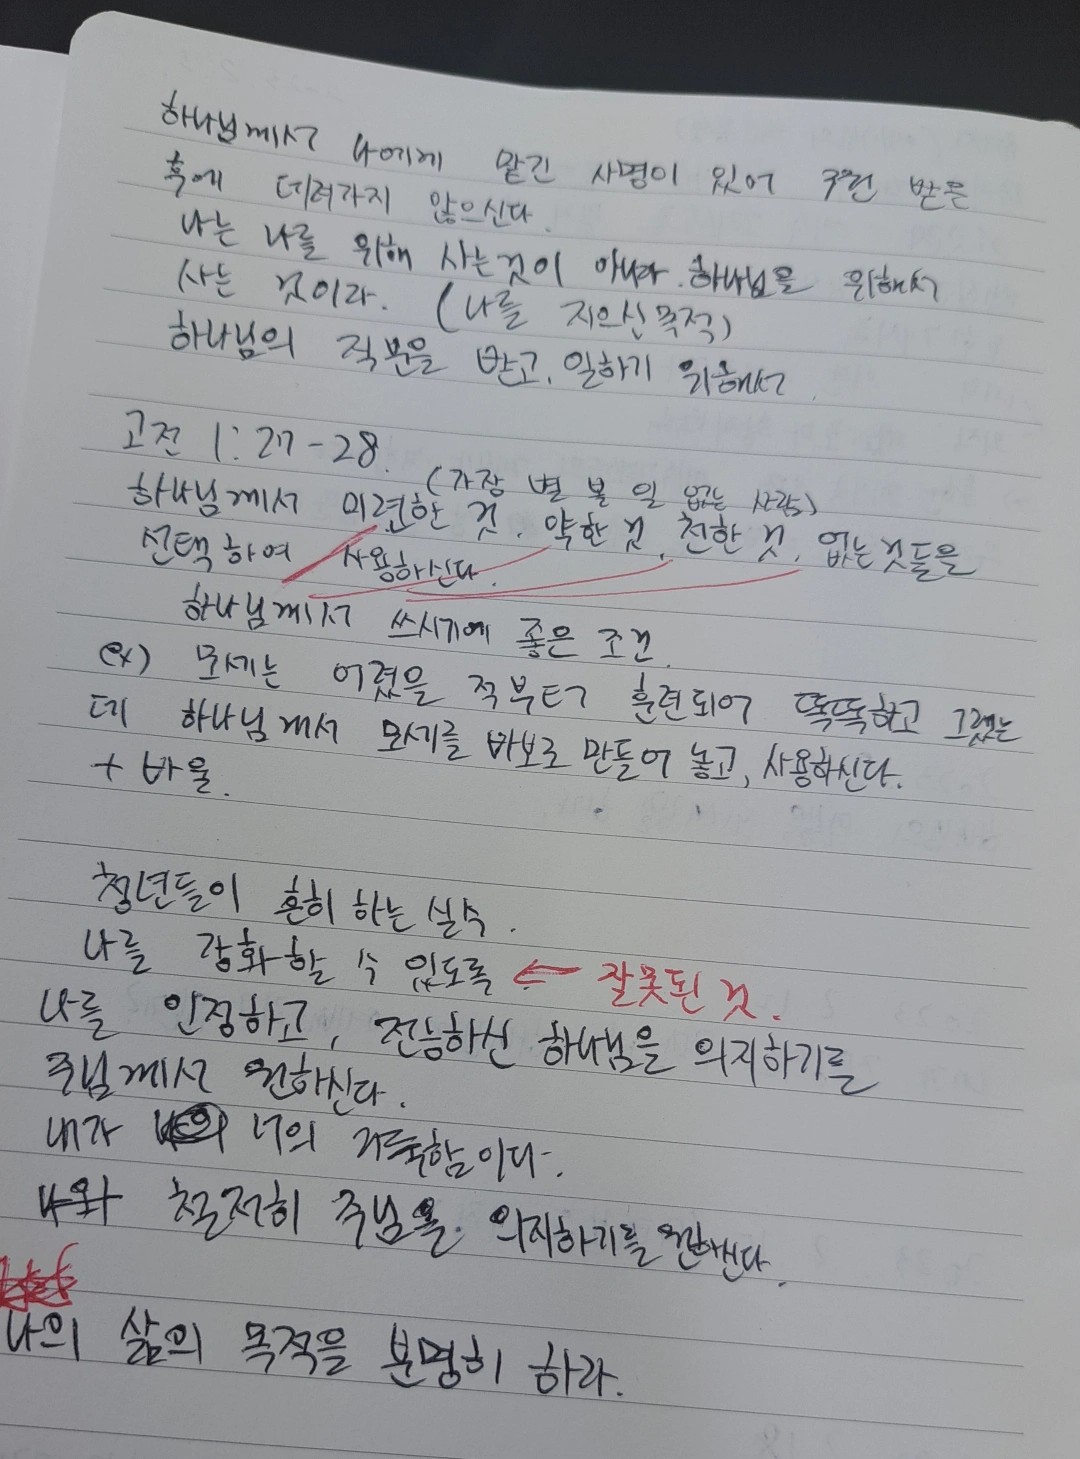 하나님께서 나에게 맡긴 사명이 있어 구원 받은
후에 데려가지 않으신다.
나는 나를 위해 사는것이 아니라 하나님을 위해서
사는 것이라. (나를 지으신 목적)
하나님의 직분을 받고, 일하기 위해서.
고전 1:27-28.
(가장 별 볼 일 없는 사람)
하나님께서 미련한 것, 약한 것, 천한 것, 없는것들을
선택하여 사용하신다.
하나님께서 쓰시기에 좋은 조건.
ex) 모세는 어렸을 적부터 훈련되어 똑똑하고 그랬는
데 하나님께서 모세를 바보로 만들어 놓고, 사용하신다.
+ 바울.
청년들이 흔히 하는 실수.
나를 강화할 수 있도록 ← 잘못된 것.
나를 인정하고, 전능하신 하나님을 의지하기를
주님께서 원하신다.
내가 너의 거룩함이다.
나와 철저히 주님을 의지하기를 원하신다.
나의 삶의 목적을 분명히 하라.